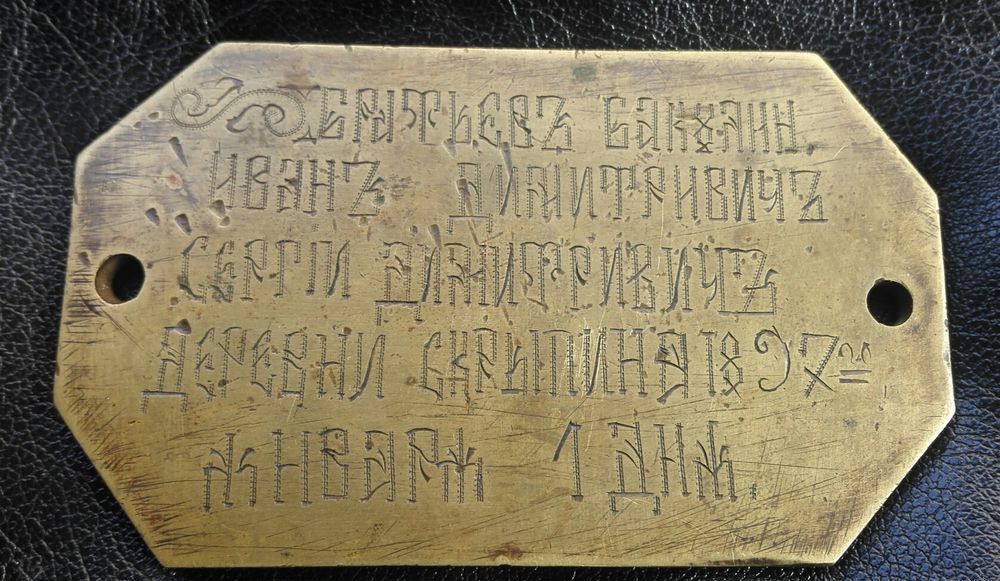 Братьевъ Бакулин.
Иванъ Димитривичъ
Сергій Димитривичъ
Деревни Скрыпина 1897 го
Января 1 дня.